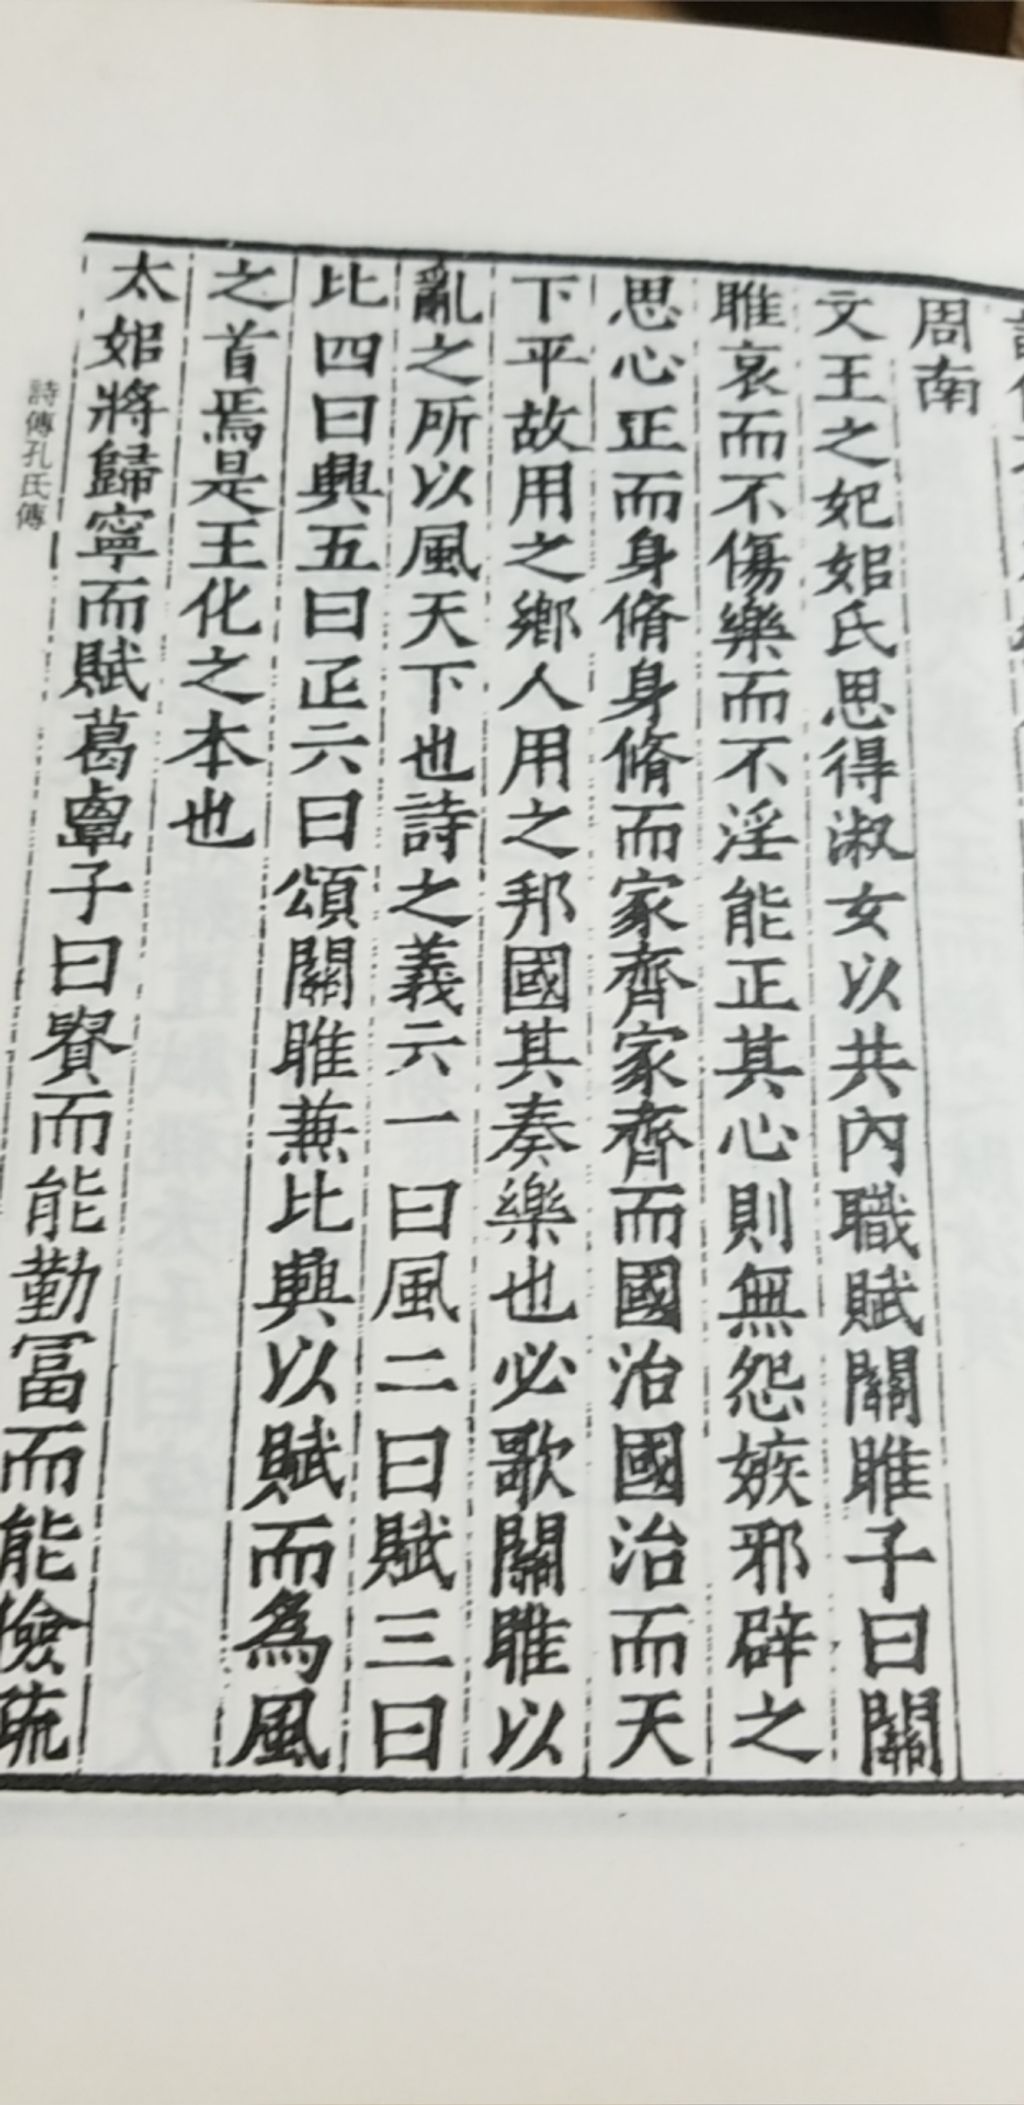 周南
文王之妃姒氏思得淑女以共內職賦關雎子曰關
雎哀而不傷樂而不淫能正其心則無怨嫉邪辟之
思心正而身脩身脩而家齊家齊而國治國治而天
下平故用之鄉人用之邦國其奏樂也必歌關雎以
亂之所以風天下也詩之義六一曰風二曰賦三曰
比四曰興五曰疋六曰頌關雎兼比興以賦而為風
之首焉是王化之本也
太姒將歸寧而賦葛覃子曰貴而能勤冨而能儉疏
詩傳孔氏傳